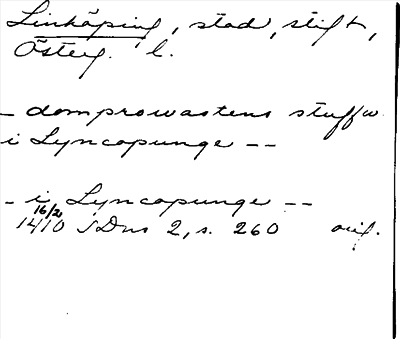 Linköping, stad, stift,
Österg. l.
– domprowastens stuffw
i Lyncopunge – –
– i Lyncopunge – –
16/2
1410 SDns 2, s. 260 orig.